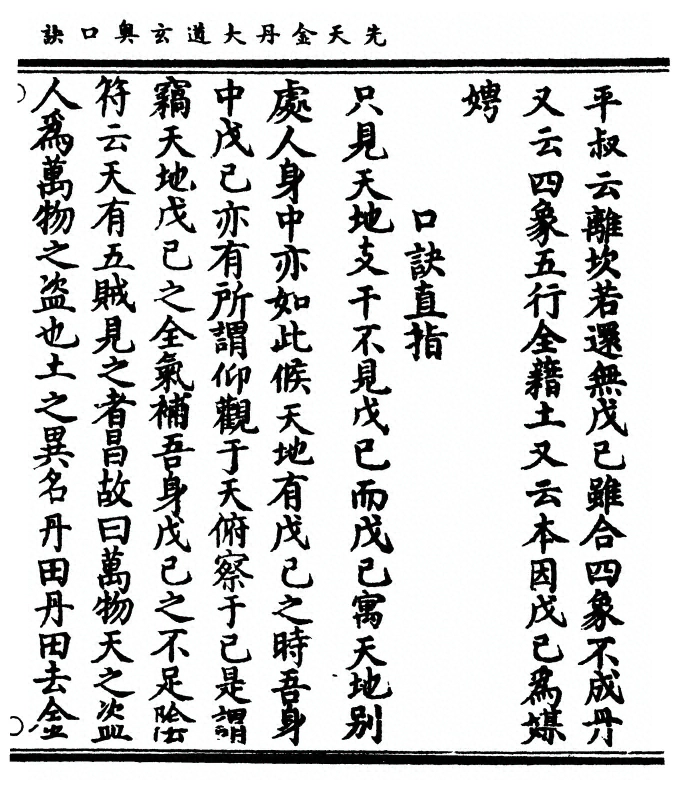 先天金丹大道玄奧口訣
平叔云離坎若還無戊己雖合四象不成丹
又云四象五行全藉土又云本因戊己為媒
娉
口訣直指
只見天地支干不見戊己而戊己寓天地別
處人身中亦如此候天地有戊己之時吾身
中戊己亦有所謂仰觀于天俯察于己是謂
竊天地戊己之全氣補吾身戊己之不足陰
符云天有五賊見之者昌故曰萬物天之盜
人為萬物之盜也土之異名丹田丹田去金